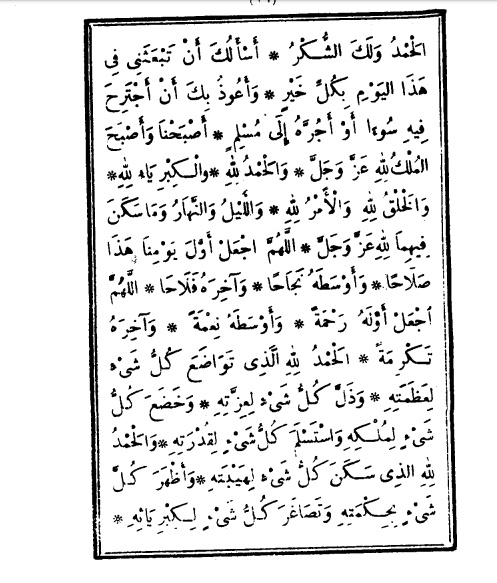 الْحَمْدُ وَلَكَ الشُّكْرُ * أَسْأَلُكَ أَنْ تَبْعَثَنِى فِى
هَذَا اليَوْمِ بِكُلِّ خَيْرٍ * وَأَعُوذُ بِكَ أَنْ أَجْتَرِحَ
فِيهِ سُوءًا أَوْ أَجُرَّهُ إِلَى مُسْلِمٍ * أَصْبَحْنَا وَأَصْبَحَ
المُلْكُ لِلهِ عَزَّ وَجَلَّ * وَالْحَمْدُ لِلهِ * والْكِبْرِيَاءُ لِلهِ *
وَالْخَلْقُ لِلهِ وَالْأَمْرُ لِلهِ * وَاللَّيْلُ وَالنَّهَارُ وَمَا سَكَنَ
فِيهِمَا لِلهِ عَزَّ وَجَلَّ * اللَّهُمَّ اجْعَلْ أَوَّلَ يَوْمِنَا هَذَا
صَلَاحًا * وَأَوْسَطَهُ نَجَاحًا * وَآخِرَهُ فَلَاحًا * اللَّهُمَّ
اجْعَلْ أَوَّلَهُ رَحْمَةً * وَأَوْسَطَهُ نِعْمَةً * وَآخِرَهُ
تَكْرِمَةً * الْحَمْدُ لِلهِ الَّذِى تَوَاضَعَ كُلُّ شَىْءٍ
لِعَظَمَتِهِ * وَذَلَّ كُلُّ شَىْءٍ لِعِزَّتِهِ * وَخَضَعَ كُلُّ
شَىْءٍ لِمُلْكِهِ وَاسْتَسْلَمَ كُلُّ شَىْءٍ لِقُدْرَتِهِ * وَالْحَمْدُ
لِلهِ الذِى سَكَنَ كُلُّ شَىْءٍ لِهَيْبَتِهِ * وَأَظْهَرَ كُلَّ
شَىْءٍ بِحِكْمَتِهِ وَتَصَاغَرَ كُلُّ شَىْءٍ لِكِبْرِيَائِهِ *